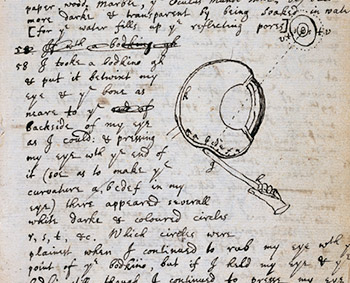 paper, wood, marble, yᵉ Oculus
more darke & transparent by being soaked in water
[for yᵉ water fills up yᵉ reflecting pores]
58 I tooke a bodkine gh
& put it betwixt my
eye & yᵉ bone as
neare to yᵉ
backside of my eye
as I could: & pressing
my eye wth yᵉ end of
it (soe as to make yᵉ
curvature a, bcdef in my
eye) there appeared severall
white darke & coloured circles
r, s, t, &c. Which circles were
plainest when I continued to rub my eye wth yᵉ
point of yᵉ bodkine, but if I held my eye & yᵉ
though I continued to presse my eye